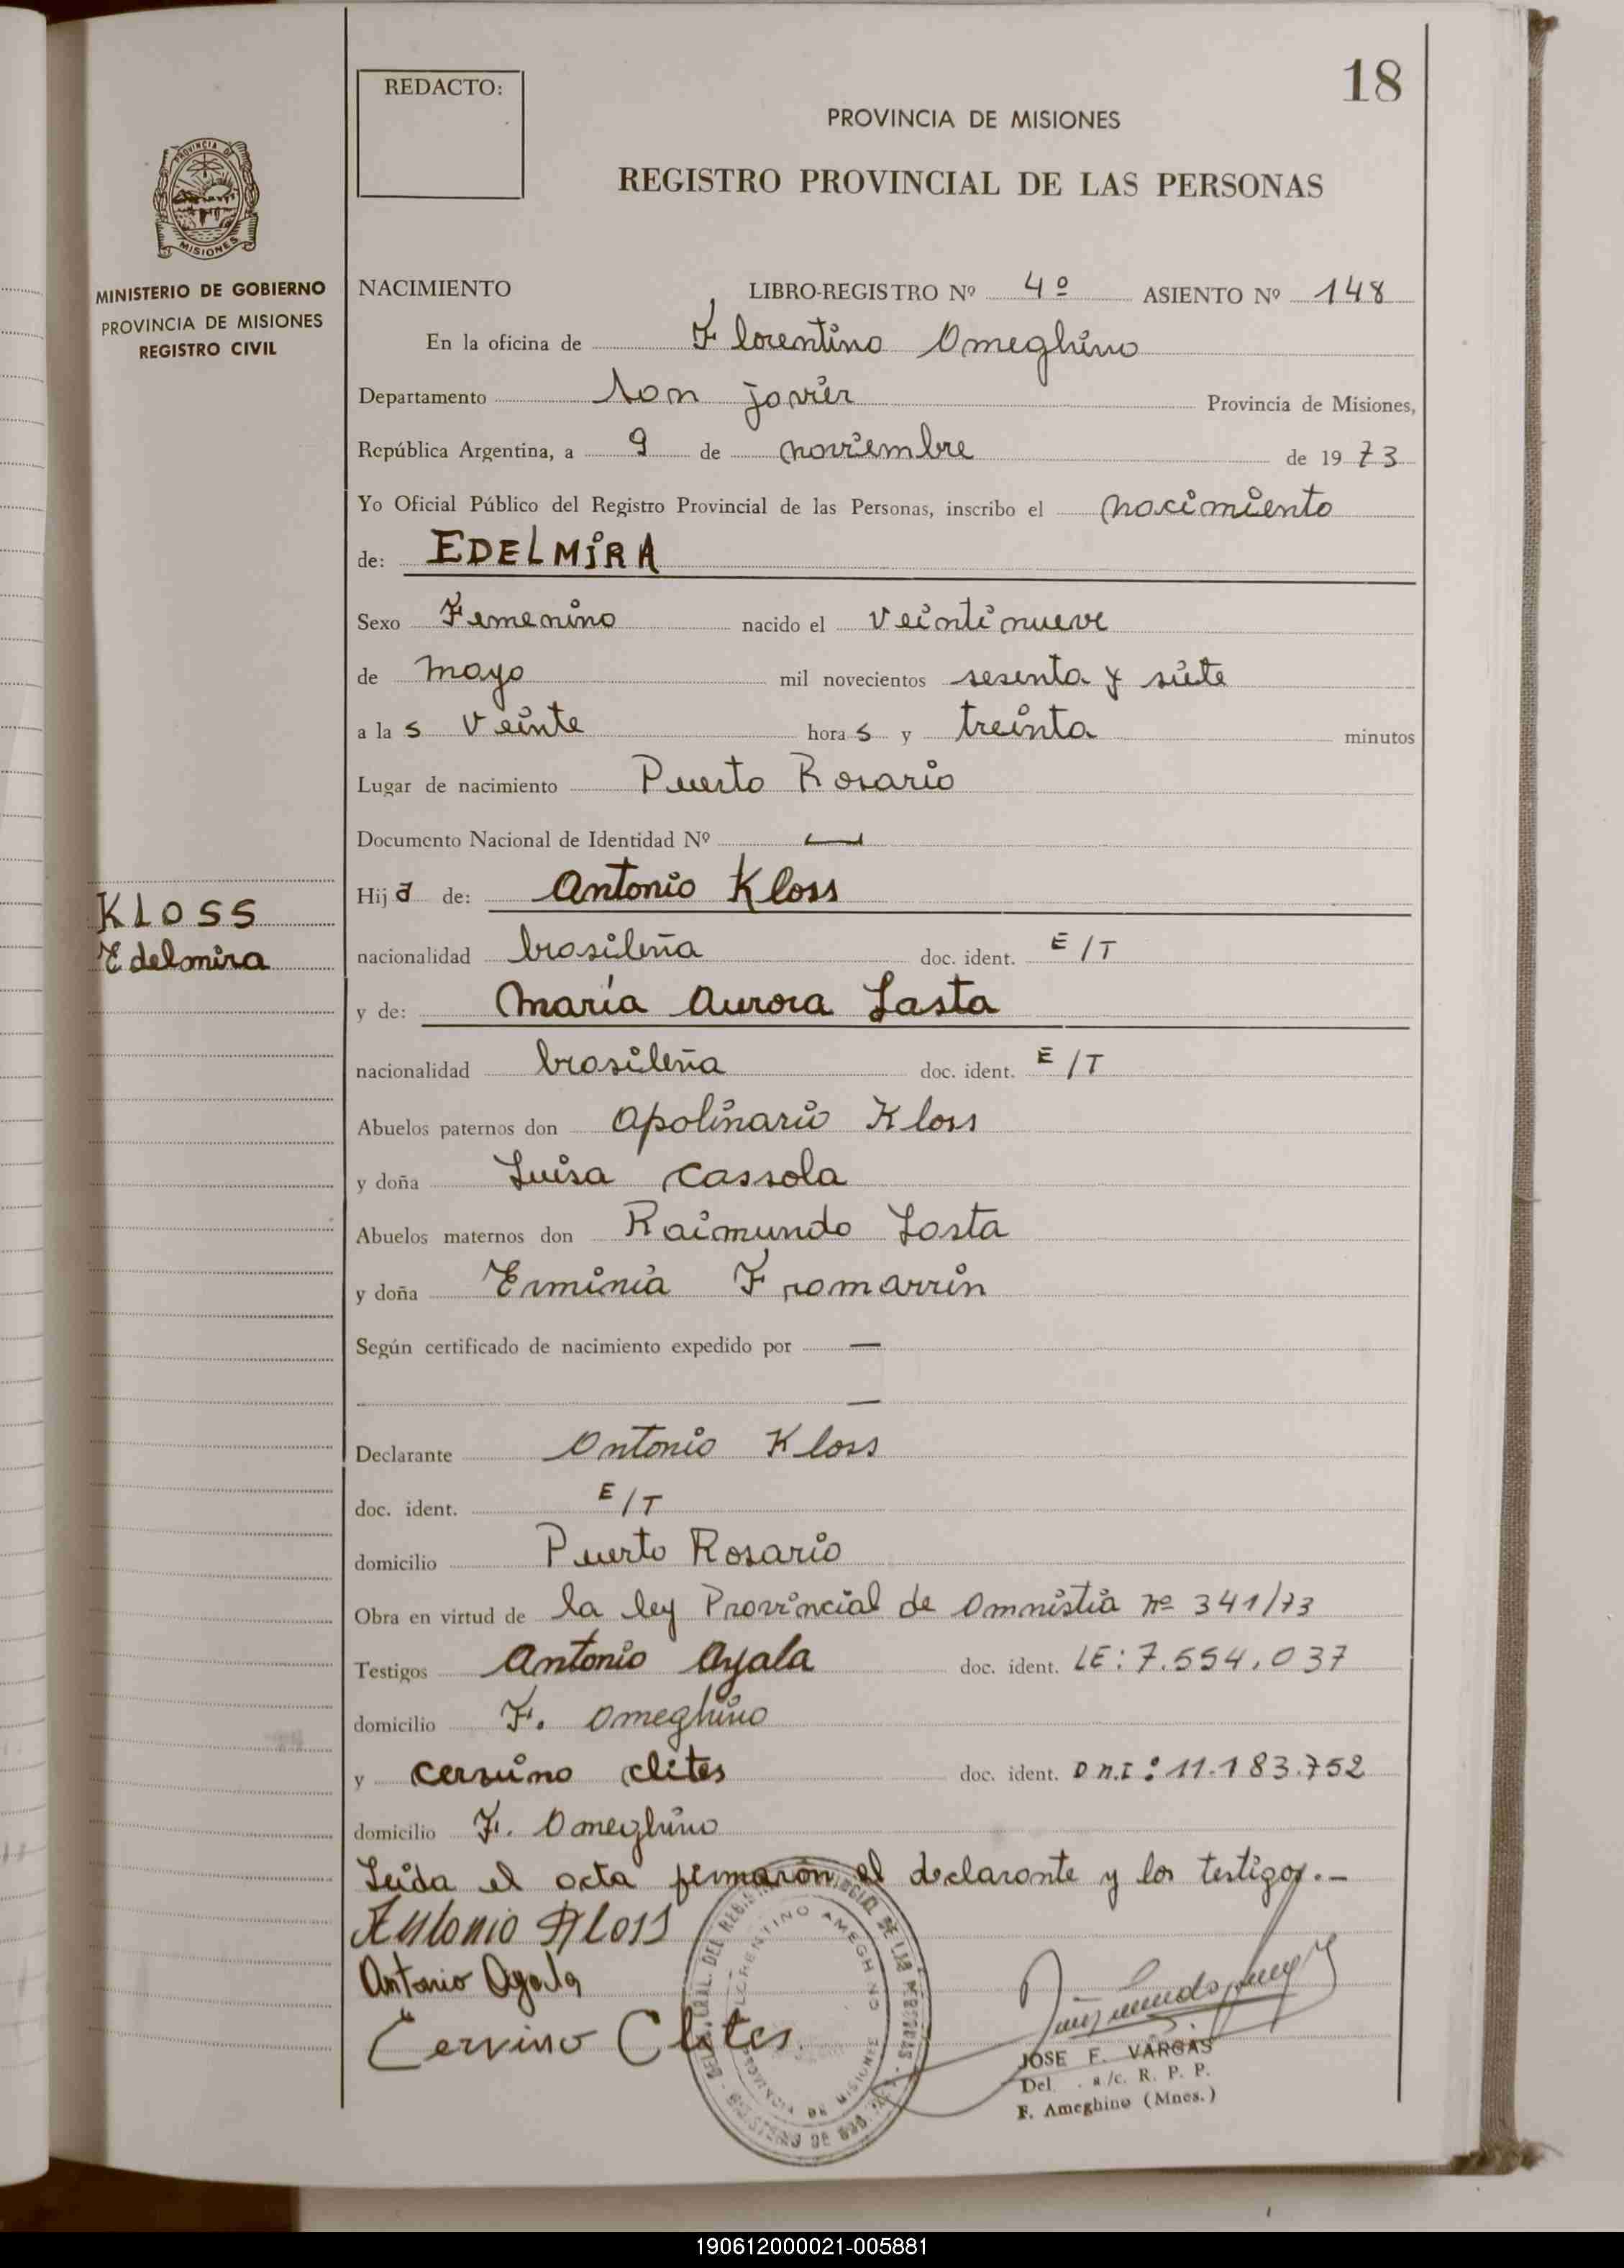 18
REDACTO:
PROVINCIA DE MISIONES
REGISTRO PROVINCIAL DE LAS PERSONAS
PROVINCIA DE
MISIONES
MINISTERIO DE GOBIERNO
PROVINCIA DE MISIONES
REGISTRO CIVIL
NACIMIENTO LIBRO-REGISTRO Nº 4º ASIENTO Nº 148
En la oficina de Florentino Ameghino
Departamento San Javier Provincia de Misiones,
República Argentina, a 9 de noviembre de 1973
Yo Oficial Público del Registro Provincial de las Personas, inscribo el nacimiento
de: EDELMIRA
Sexo Femenino nacido el veintinueve
de mayo mil novecientos sesenta y siete
a las veinte horas y treinta minutos
Lugar de nacimiento Puerto Rosario
Documento Nacional de Identidad Nº —
Hija de: Antonio Kloss
KLOSS
Edelmira
nacionalidad brasileña doc. ident. E/T
y de: María Aurora Lasta
nacionalidad brasileña doc. ident. E/T
Abuelos paternos don Apolinario Kloss
y doña Luisa Cassola
Abuelos maternos don Raimundo Lasta
y doña Erminia Fromarrin
Según certificado de nacimiento expedido por —
—
Declarante Antonio Kloss
doc. ident. E/T
domicilio Puerto Rosario
Obra en virtud de la ley Provincial de Amnistia nº 341/73
Testigos Antonio Ayala doc. ident. LE: 7.554.037
domicilio F. Ameghino
y Cersino Clites doc. ident. D.N.I: 11.183.752
domicilio F. Ameghino
Leida el acta firmarón el declarante y los testigos.-
Antonio Kloss
Antonio Ayala
Cervino Clites
FLORENTINO AMEGHINO
PROVINCIA DE MISIONES
JOSE F. VARGAS
Del. a/c. R. P. P.
F. Ameghino (Mnes.)
190612000021-005881